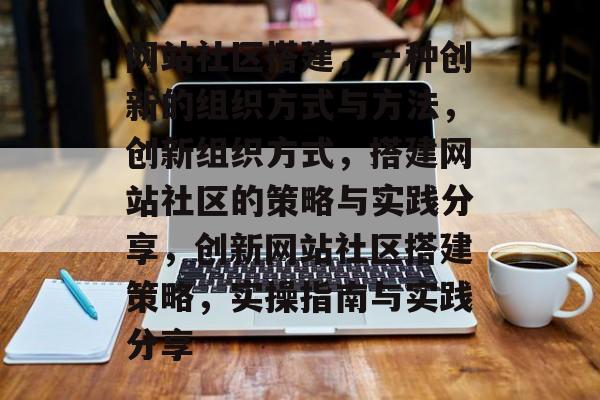 网站社区搭建，一种创
新的组织方式与方法，
创新组织方式，搭建网
站社区的策略与实践分
享，创新网站社区搭建
策略，实操指南与实践
分享